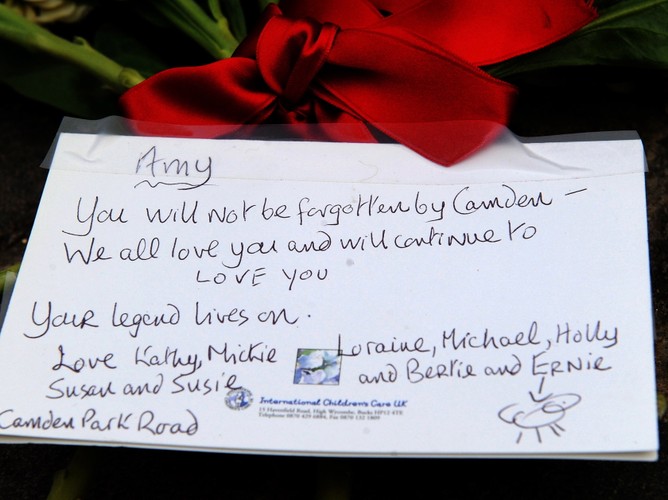 Amy
You will not be forgotten by Camden –
We all love you and will continue to
LOVE YOU
Your legend lives on.
Love Kathy, Mickie
Susan and Susie
Camden Park Road
Loraine, Michael, Holly
and Bertie and ERNIE
International Children's Care UK
15 Havenfield Road, High Wycombe, Bucks HP12 4TS